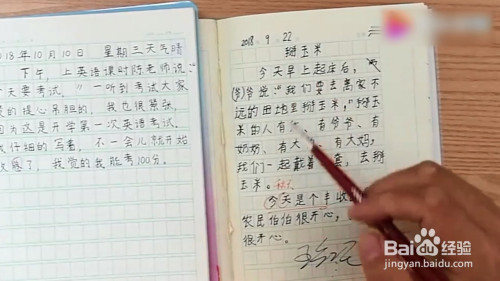 2018年10月10日 星期三天气晴
下午，上英语课时陈老师说：“
天要考试。”一听到考试大家
的提心吊胆的 我也很紧张
为这是开学第一次英语考试。
大仔细的写着，不一会儿就开始
我觉的我能考100分。
2018 9 22
掰玉米
今天早上起床后，
爷爷说：“我们要去离家不
远的田地里掰玉米，”掰玉
米的人有 有爷爷、有
奶奶、有大 有大妈，
我们一起戴着 套，去掰
玉米。
今天是个丰收
农民伯伯很开心，
很开心。
Baidu经验
jingyan.baidu.com